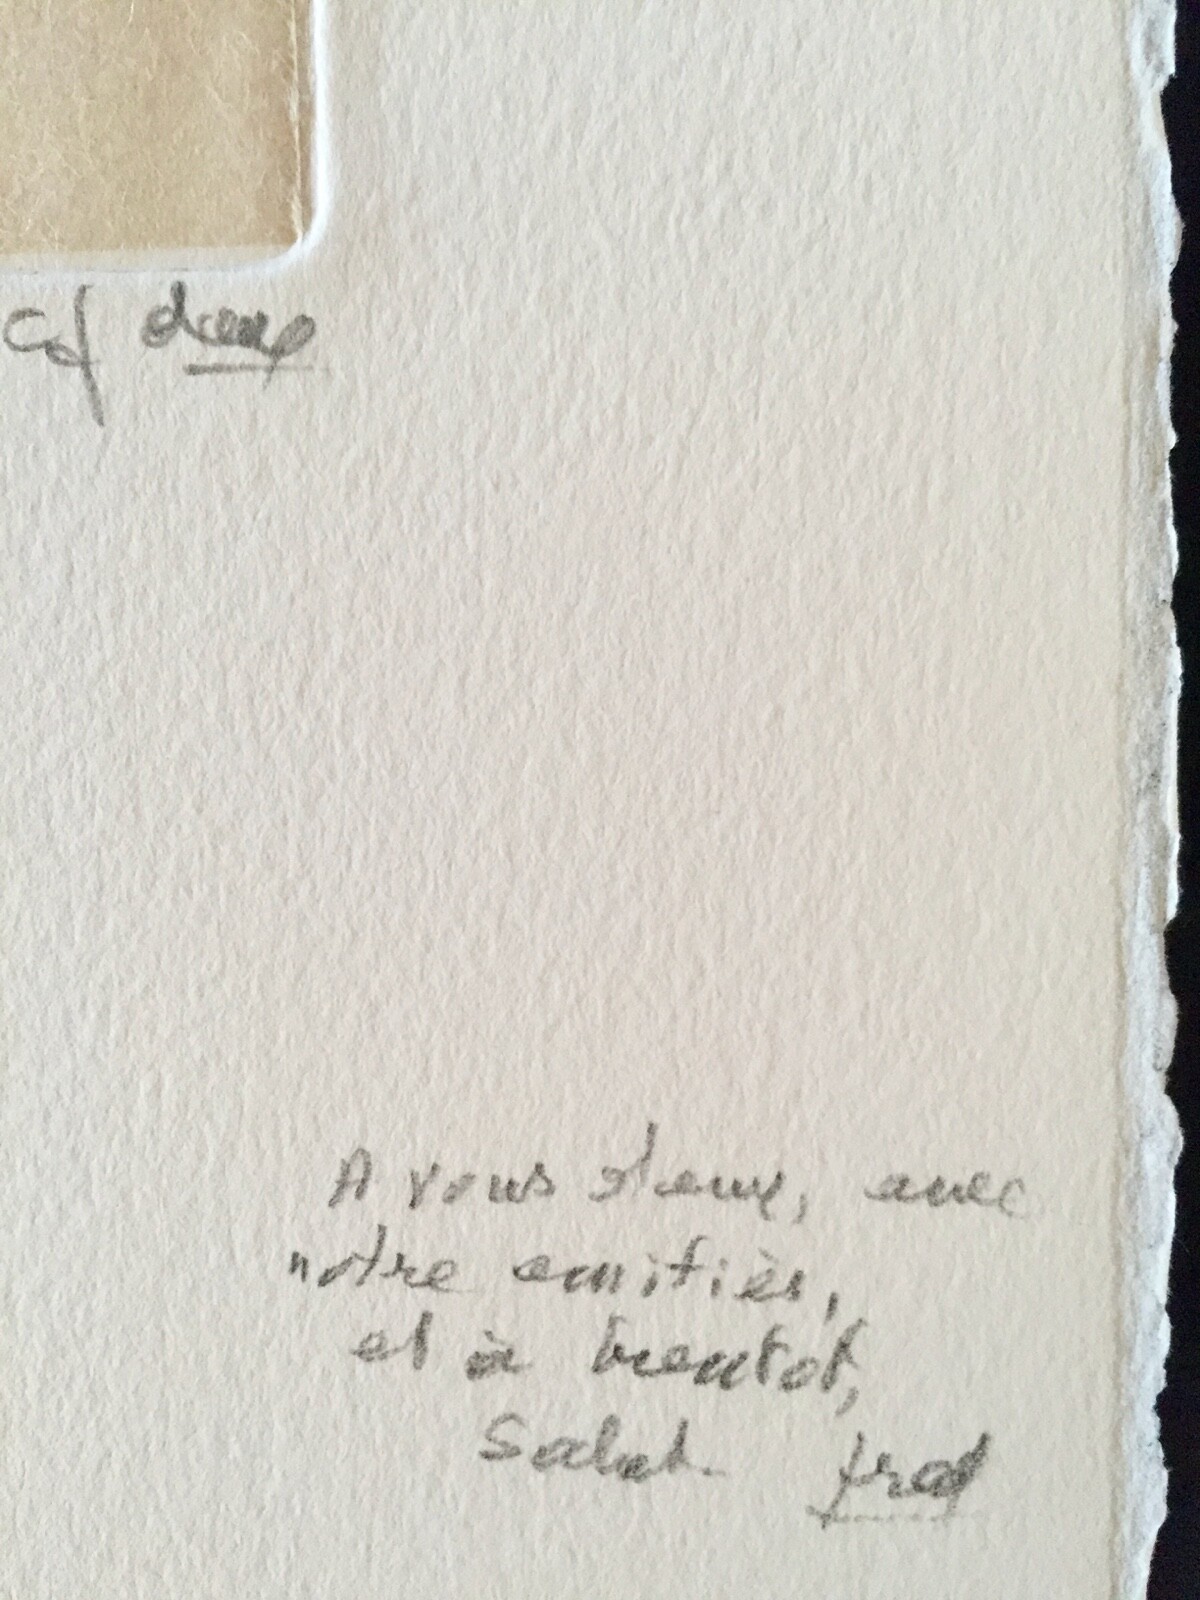 deux
A vous deux, avec
notre amitiés,
et à bientôt,
Salut. fred